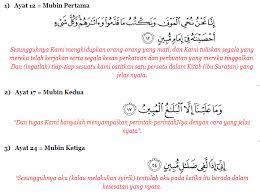 1) Ayat 12 = Mubin Pertama
إِنَّا نَحْنُ نُحْيِ الْمَوْتَى وَنَكْتُبُ مَا قَدَّمُوا وَآثَارَهُمْ وَكُلَّ شَيْءٍ
أَحْصَيْنَاهُ فِي إِمَامٍ مُبِينٍ ١٢
Sesungguhnya Kami menghidupkan orang-orang yang mati, dan Kami tuliskan segala yang
mereka telah kerjakan serta segala kesan perkataan dan perbuatan yang mereka tinggalkan.
Dan (ingatlah) tiap-tiap sesuatu kami catitkan satu persatu dalam Kitab (ibu Suratan) yang
jelas nyata.
2) Ayat 17 = Mubin Kedua
وَمَا عَلَيْنَا إِلَّا الْبَلَاغُ الْمُبِينُ ١٧
"Dan tugas Kami hanyalah menyampaikan perintah-perintahNya dengan cara yang jelas
nyata".
3) Ayat 24 = Mubin Ketiga
إِنِّي إِذًا لَفِي ضَلَالٍ مُبِينٍ ٢٤
"Sesungguhnya aku (kalau melakukan syirik) tentulah aku pada ketika itu berada dalam
kesesatan yang nyata.